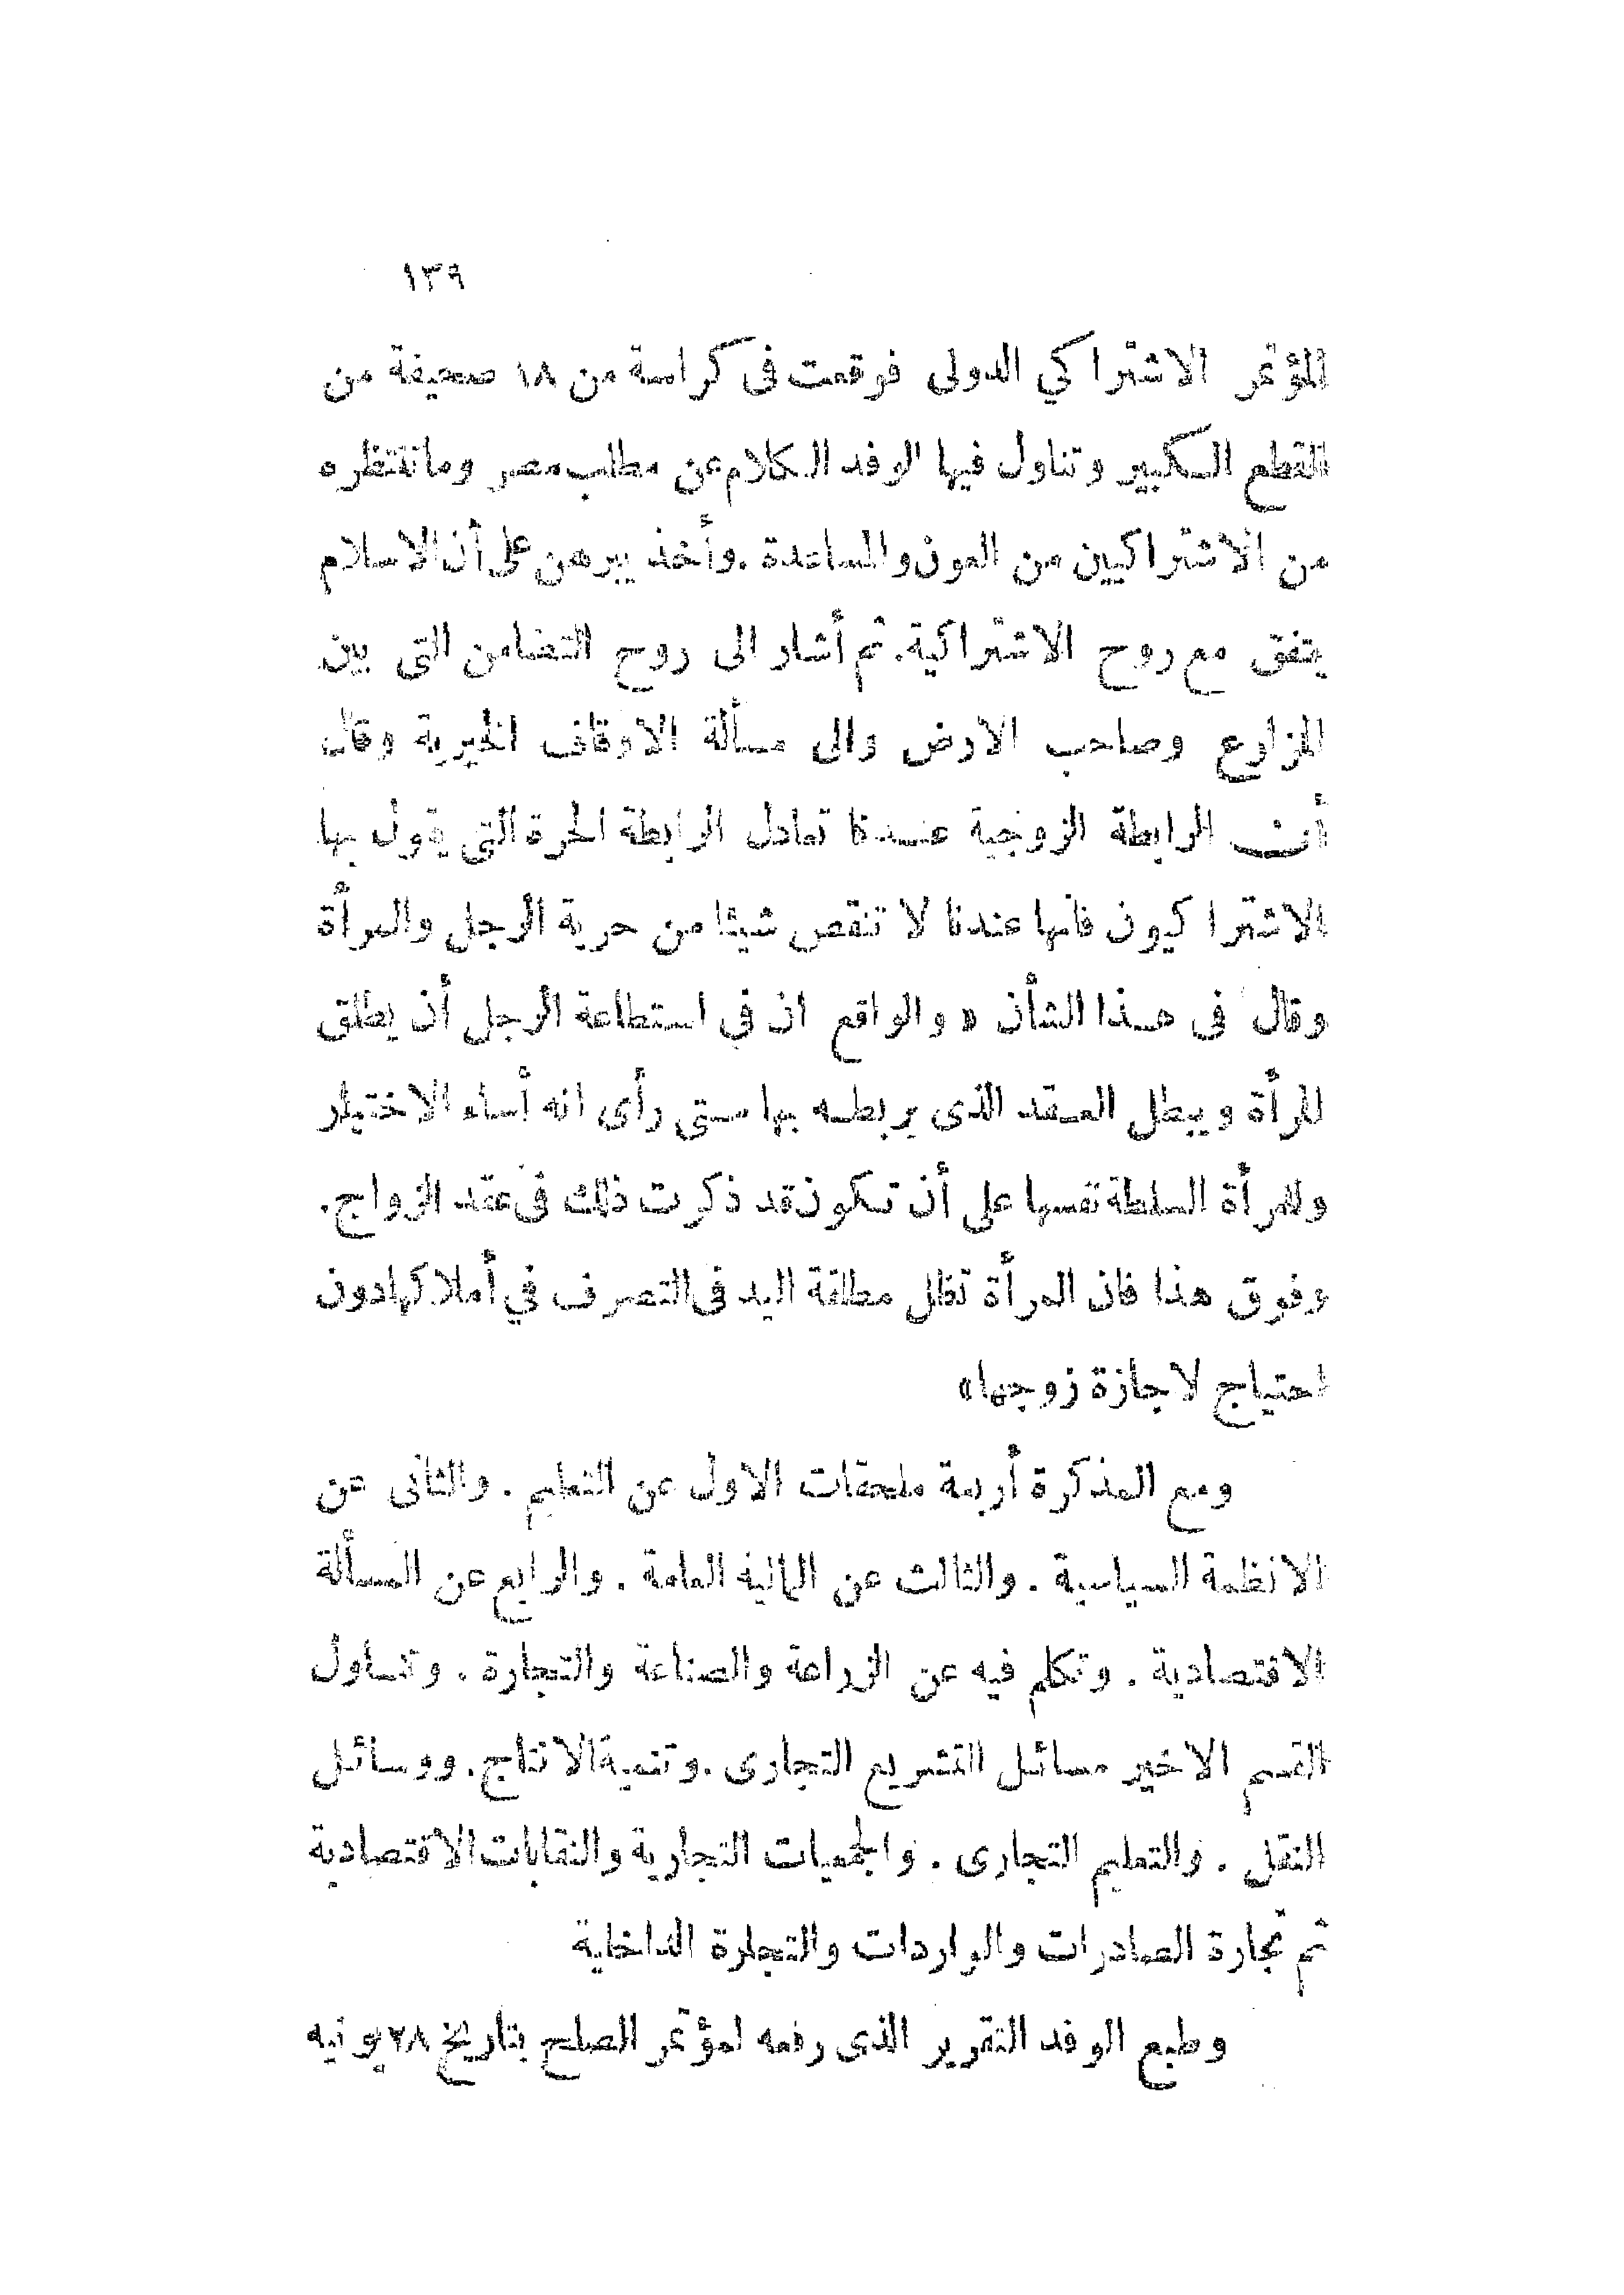 ١٣٩
المؤتمر الاشتراكي الدولى فوقعت فى كراسة من ١٨ صحيفة من
القطع الكبير وتناول فيها الوفد الكلام عن مطلب مصر وما تنتظره
من الاشتراكيين من العون والمساعدة . وأخذ يبرهن على أن الاسلام
يتفق مع روح الاشتراكية. ثم أشار الى روح التضامن التى بين
المزارع وصاحب الارض والى مسألة الاوقاف الخيرية وقال
أن الرابطة الزوجية عندنا تعادل الرابطة الحرة التى يقول بها
الاشتراكيون فانها عندنا لا تنقص شيئا من حرية الرجل والمرأة
وقال فى هذا الشأن « والواقع ان في استطاعة الرجل أن يطلق
المرأة ويبطل العقد الذى يربطه بها متى رأى انه أساء الاختيار
وللمرأة السلطة نفسها على أن تكون قد ذكرت ذلك فى عقد الزواج.
وفوق هذا فان المرأة تظل مطلقة اليد فى التصرف في أملاكها دون
احتياج لاجازة زوجها»
ومع المذكرة أربعة ملحقات الاول عن التعليم . والثانى عن
الانظمة السياسية . والثالث عن المالية العامة . والرابع عن المسألة
الاقتصادية . وتكلم فيه عن الزراعة والصناعة والتجارة . وتناول
القسم الاخير مسائل التشريع التجارى . وتنمية الانتاج . ووسائل
النقل . والتعليم التجارى . والجمعيات التجارية والنقابات الاقتصادية
ثم تجارة الصادرات والواردات والتجارة الداخلية
وطبع الوفد التقرير الذى رفعه لمؤتمر الصلح بتاريخ ٢٨ يونيه